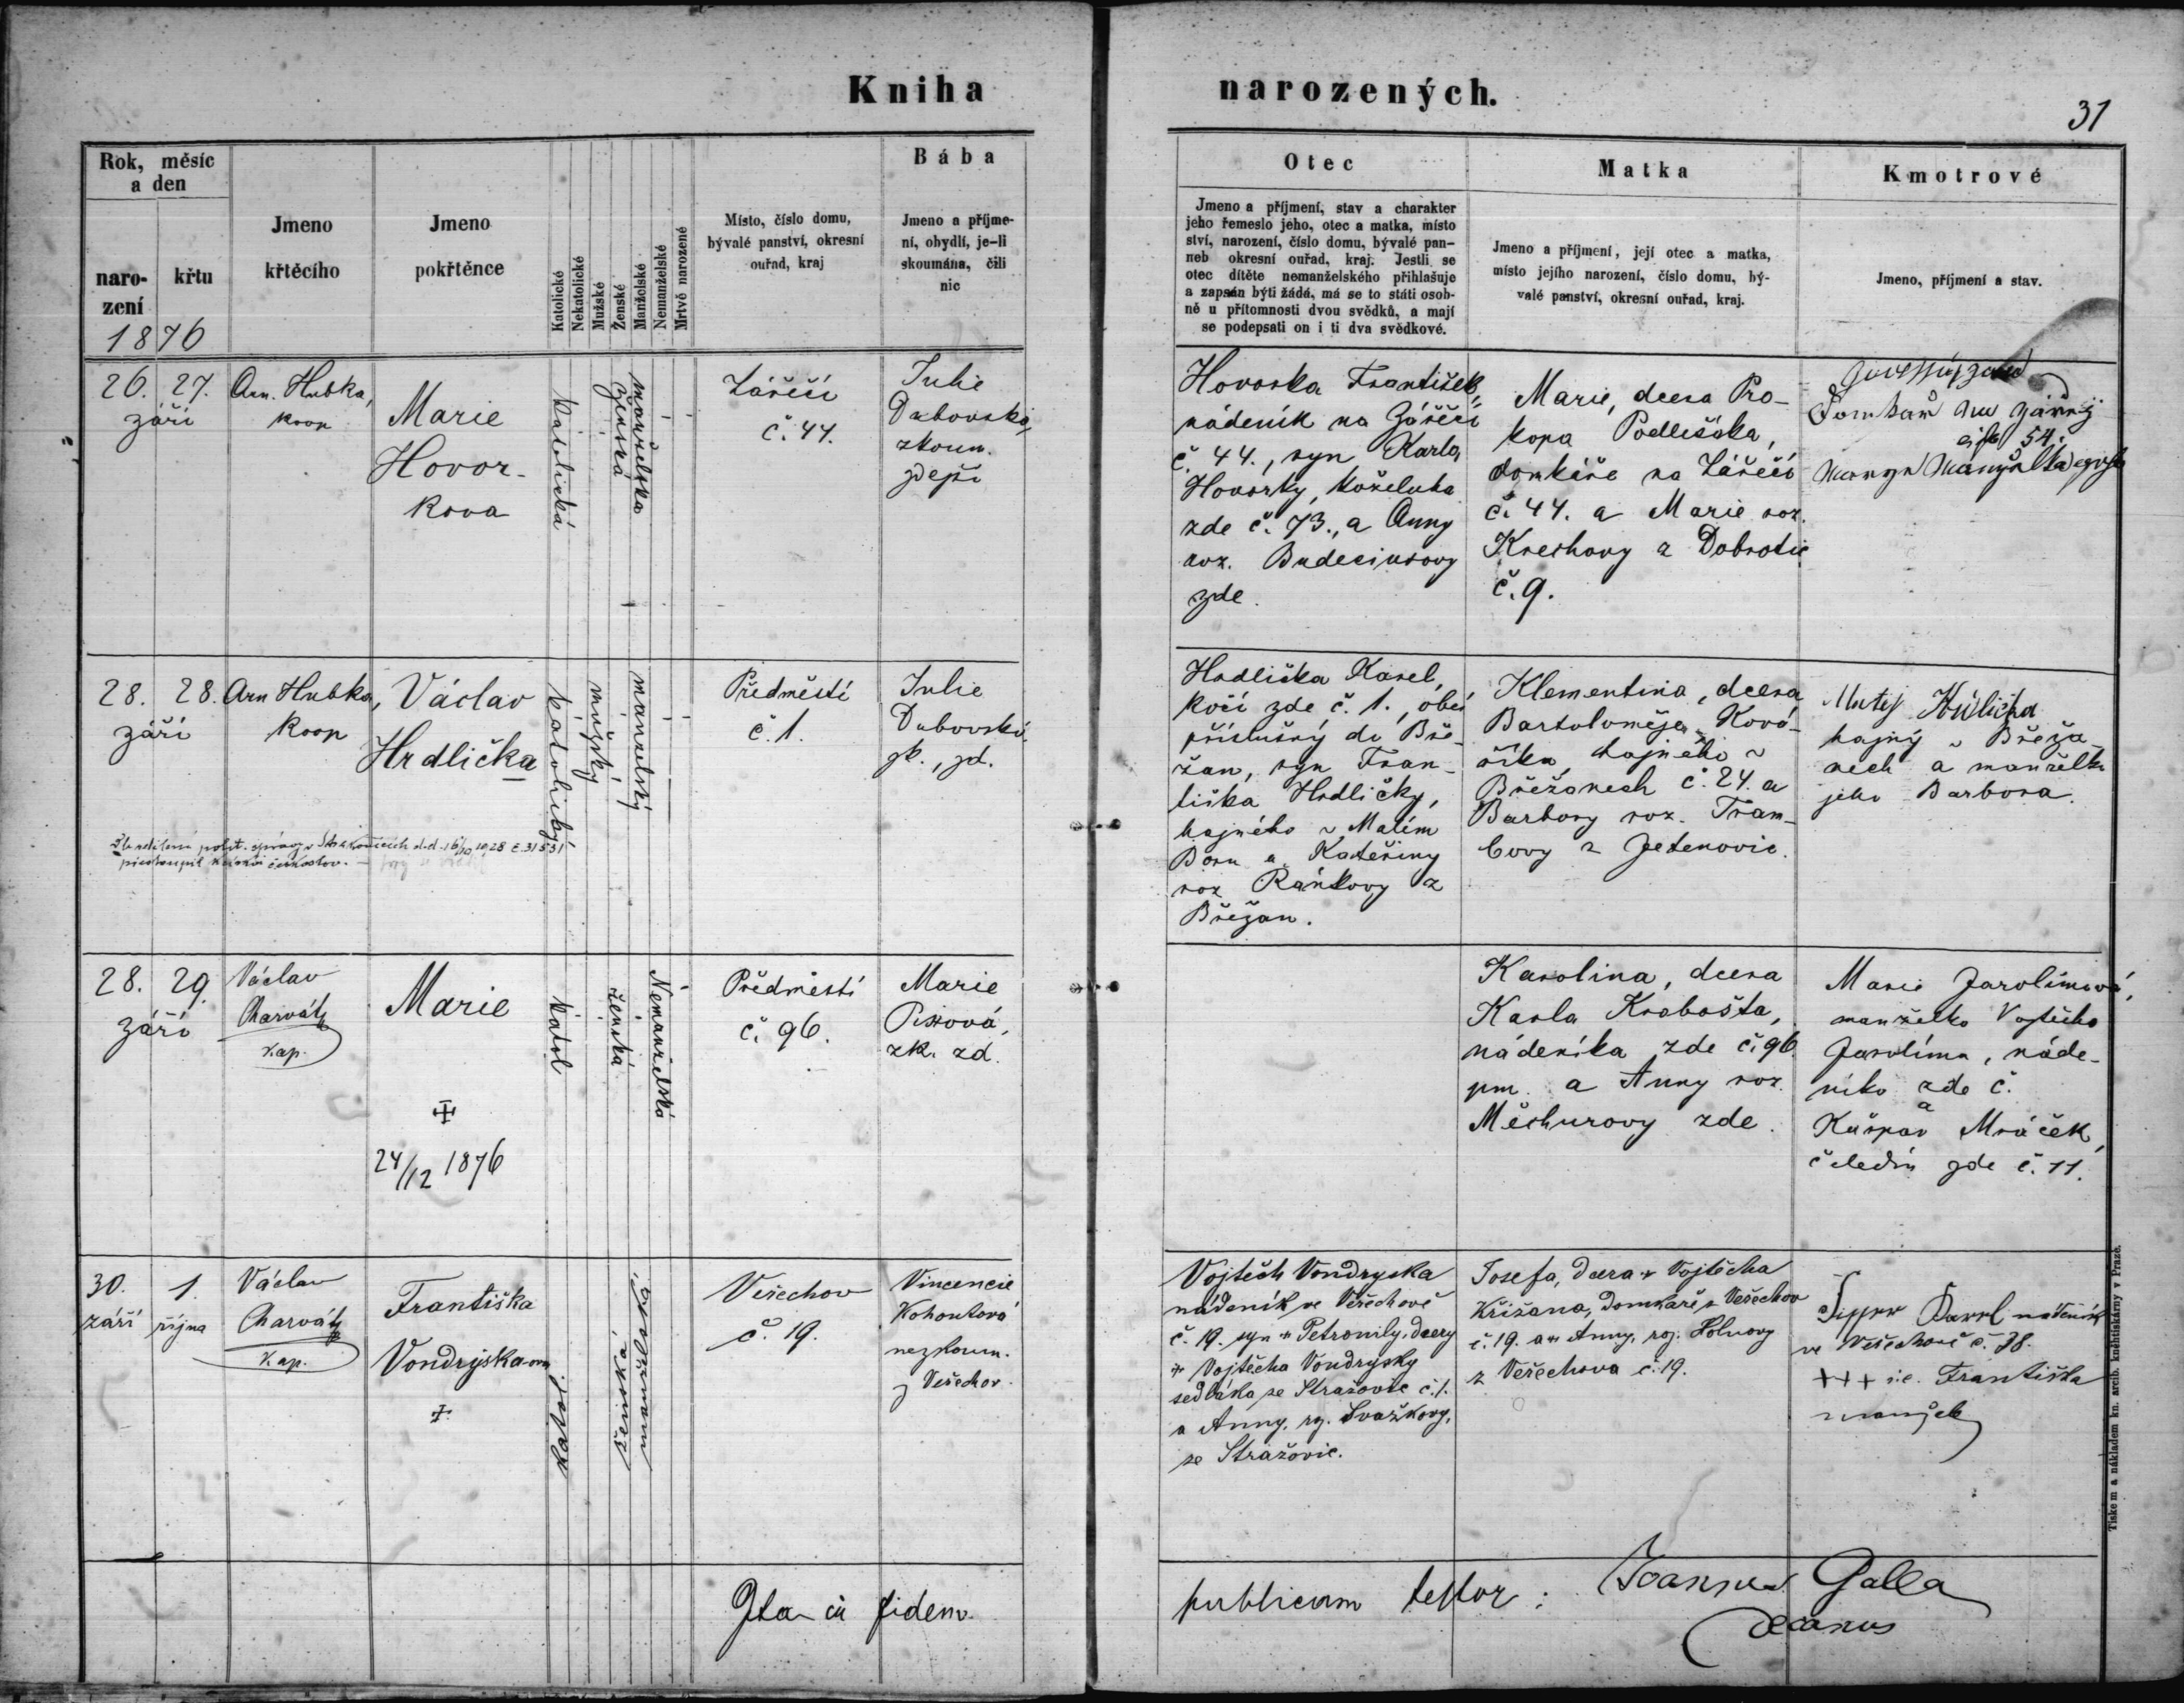 Kniha
narozených.
31
Rok, měsíc
a den
naro-
zení
křtu
1876
Jmeno
křtěcího
Jmeno
pokřtěnce
Katolické
Nekatolické
Mužské
Ženské
Manželské
Nemanželské
Mrtvě narozené
Místo, číslo domu,
bývalé panství, okresní
ouřad, kraj
Bába
Jmeno a příjme-
ní, obydlí, je-li
skoumána, čili
nic
Otec
Jmeno a příjmení, stav a charakter
jeho řemeslo jeho, otec a matka, místo
ství, narození, číslo domu, bývalé pan-
neb okresní ouřad, kraj. Jestli se
otec dítěte nemanželského přihlašuje
a zapsán býti žádá, má se to státi osob-
ně u přítomnosti dvou svědků, a mají
se podepsati on i ti dva svědkové.
Matka
Jmeno a příjmení, její otec a matka,
místo jejího narození, číslo domu, bý-
valé panství, okresní ouřad, kraj.
Kmotrové
Jmeno, příjmení a stav.
26. 27.
září
Arn. Hubka,
koop
Marie
Hovor-
kova
katolická
ženská
manželska
Zářečí
č. 44.
Julie
Dubovská,
zkoum.
zdejší
Hovorka František,
nádeník na Zářečí
č. 44., syn Karla
Hovorky, koželuha
zde č. 73., a Anny
roz. Budeciusovy
zde.
Marie, dcera Pro-
kopa Podlešáka,
domkáře na Zářečí
č. 44. a Marie roz.
Krechovy z Dobrotic
č. 9.
54.
28. 28.
září
Arn Hubka,
Koop
Václav
Hrdlička
katolický
mužský
manželský
Předměstí
č. 1.
Julie
Dubovská,
zk., zd.
Hrdlička Karel,
kočí zde č. 1., obcí
příslušný do Bře-
žan, syn Fran-
tiška Hrdličky,
hajného v Malím
Boru a Kateřiny
roz. Raňkovy z
Břežan.
Klementina, dcera
Bartoloměje Ková-
říka, hajného v
Břežanech č. 24. a
Barbory roz. Tram-
bovy z Jetenovic.
Matej
hajný v Břeža-
nech a manželka
jeho Barbora.
28. 29.
září
Václav
Charvát
kap.
Marie
24/12 1876
katol
ženská
Nemanželská
Předměstí
č. 96.
Marie
Pixová,
zk. zd.
Karolina, dcera
Karla Krabošta,
nádeníka zde č. 96.
pm. a Anny roz.
Měchurovy zde.
Marie Jarolímová,
manželka Vojtěcha
Jarolíma, náde-
níka zde č.
a
Kašpar Mráček,
čeledín zde č. 11.
30. 1.
září října
Václav
Charvát
kap.
Františka
Vondryska-ova
katol.
ženská
manželská
Veřechov
č. 19.
Vincencie
Kohoutová
nezkoum.
z Veřechov.
Vojtěch Vondryska
nádeník ve Veřechově
č. 19. syn + Petronily, dcery
+ Vojtěcha Vondrysky
sedláka ze Stražovic č. 1.
a Anny, rz. Svažkovy,
ze Stražovic.
Josefa, dcera + Vojtěcha
Křižana, domkaře z Veřechov
č. 19. a Anny, roz. Holuovy
z Veřechova č. 19.
Karel nádeník
ve Veřechově č. 38.
+++ i.e. Františka
manželk
Ita in fidem
publicam testor: Joannes Galla
decanus
Tiskem a nákladem kn. arcib. knihtiskárny v Praze.